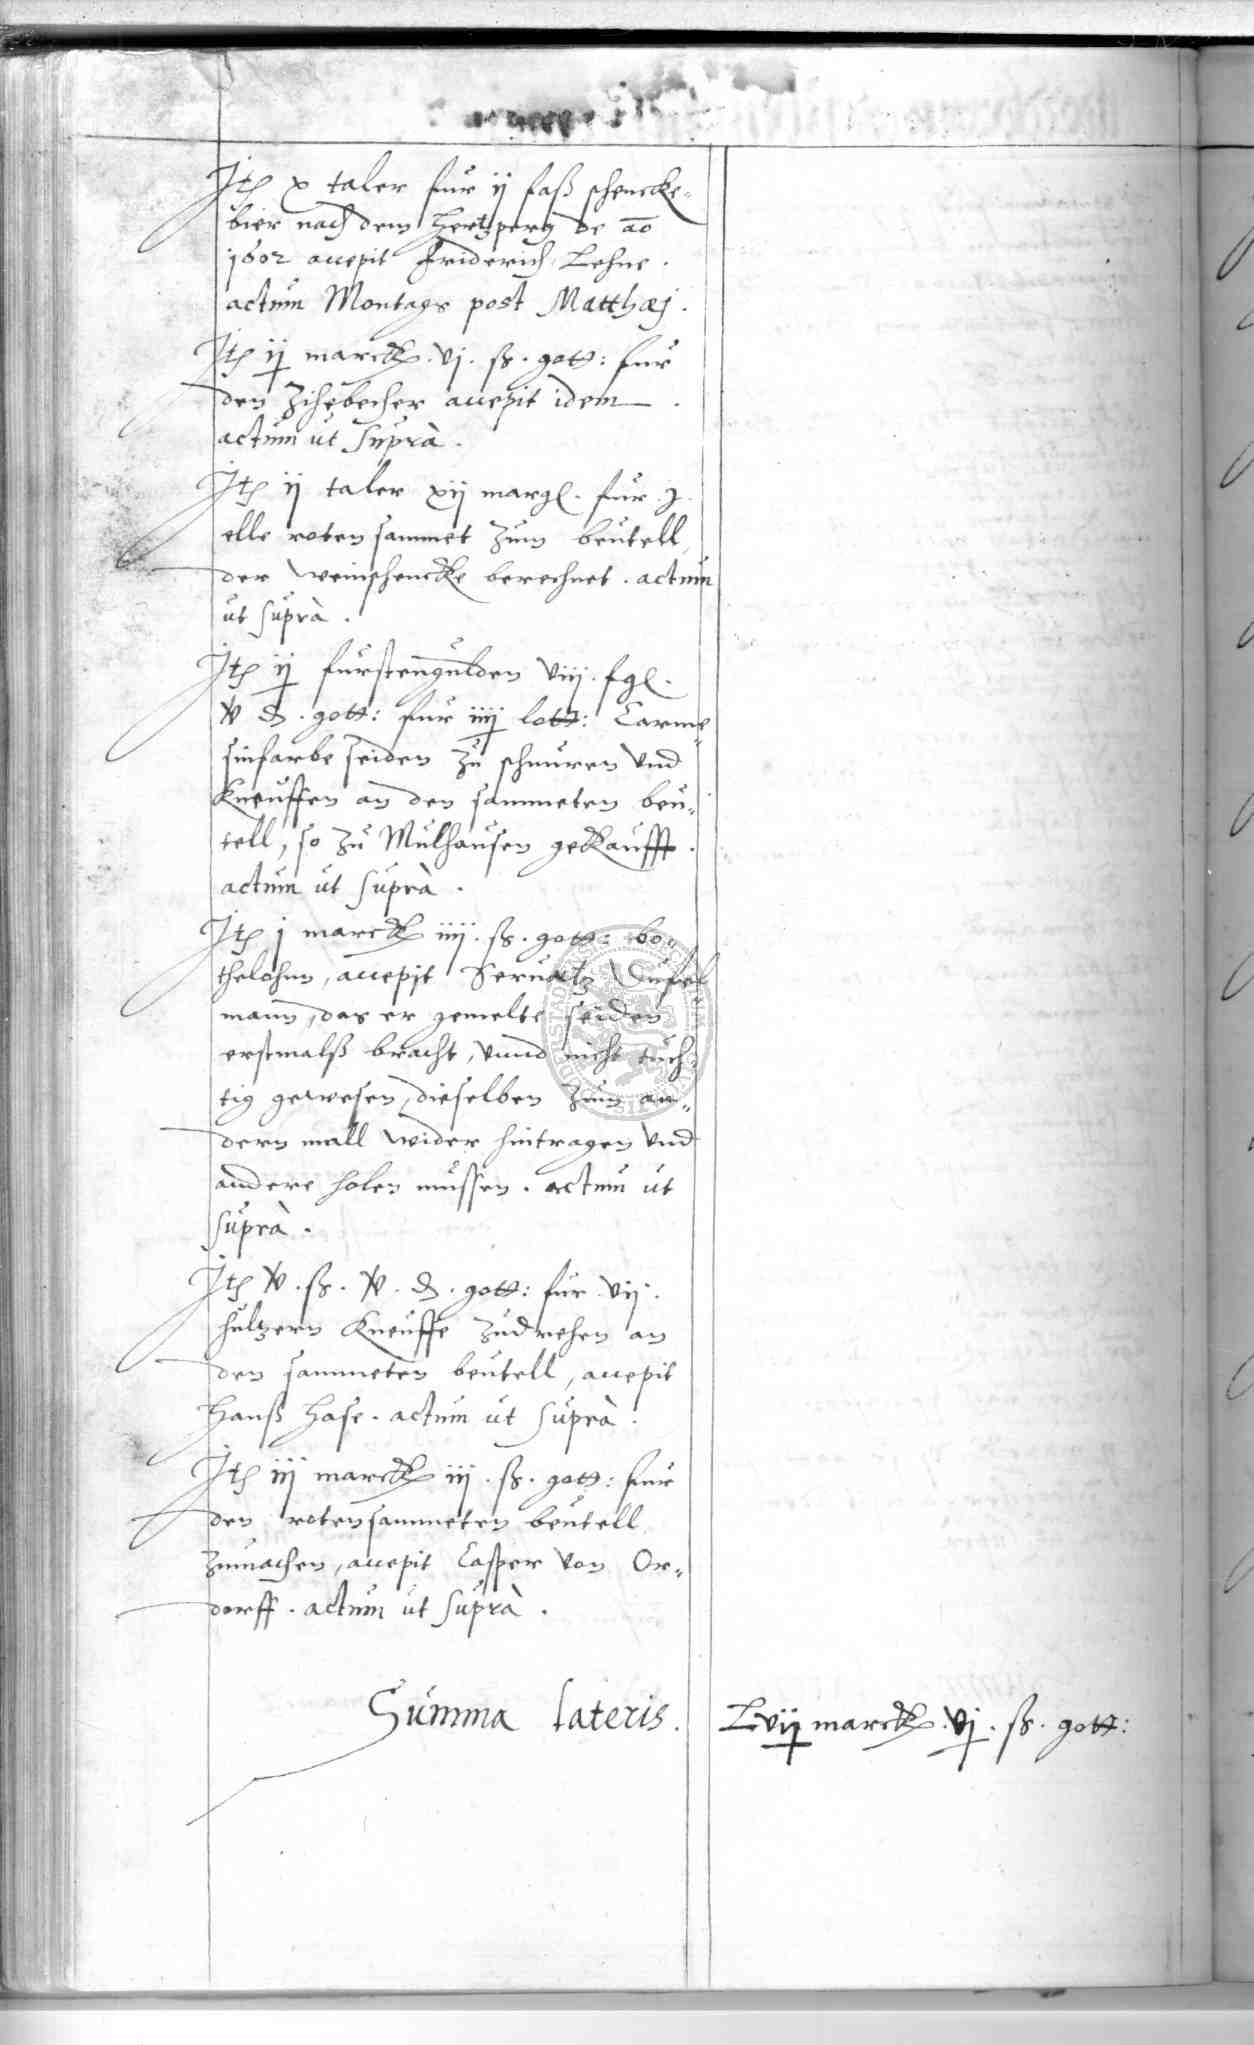 Itē x taler fur ij faß schencke„
bier nach dem Hertzperg de āo
1602 accepit Friderich Lehne.
actum Montags post Matthæj.
Itē ij marck. vj. ß. gott: fur
den Zihebecher accepit idem.
actum ut suprà.
Itē ij taler xij margl. fur j.
elle roten sammet zum beutell
der weinschencke berechnet. actum
ut suprà.
Itē ij furstengulden viij. fgl.
v ₰. gott: fur iiij lott: Carme„
sinfarbe seiden zu schnuren vnd
Kneuffen an den sammeten beu„
tell, so zu Mulhausen gekaufft.
actum ut suprà.
Itē j marck iiij. ß. gott: bo„
thelohnn, accepit Servatz
mann, das er gemelte seiden
erstmalß bracht, vnnd nicht tuch„
tig gewesen, dieselben zum an„
dern mall wider hintragen vnd
andere holen mussen. actum ut
suprà.
Itē v. ß. v. ₰. gott: fur vij.
hultzern Kneuffe zudrehen an
den sammeten beutell, accepit
Hanß Hase. actum ut suprà.
Itē iij marck iij. ß. gott: fur
den roten sammeten beutell
zumachen, accepit Casper von Or„
dorff. actum ut suprà.
Summa lateris. Lvij marck. vj. ß. gott: